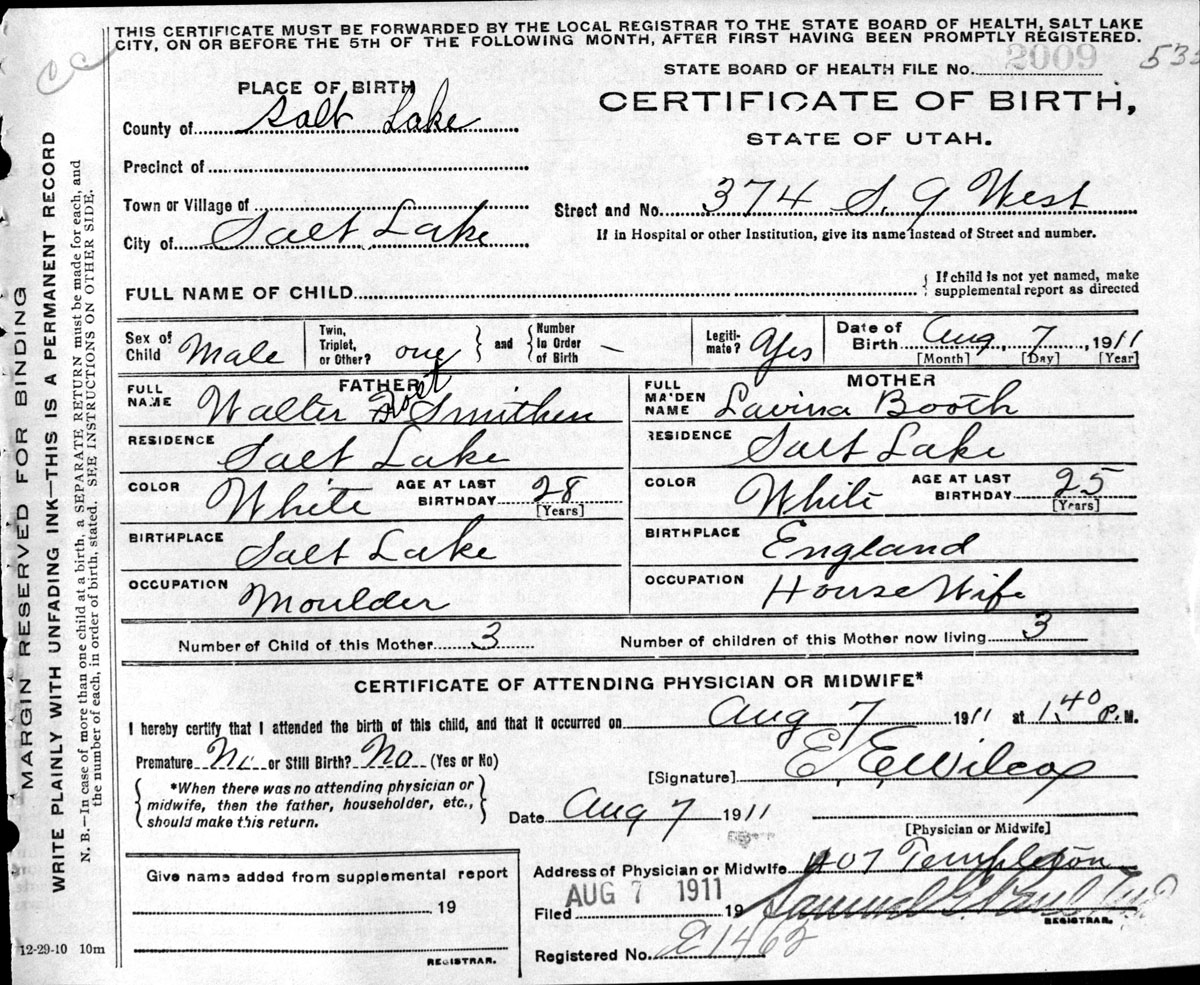 THIS CERTIFICATE MUST BE FORWARDED BY THE LOCAL REGISTRAR TO THE STATE BOARD OF HEALTH, SALT LAKE
CITY, ON OR BEFORE THE 5TH OF THE FOLLOWING MONTH, AFTER FIRST HAVING BEEN PROMPTLY REGISTERED.
STATE BOARD OF HEALTH FILE No. 2009
PLACE OF BIRTH
CERTIFICATE OF BIRTH,
STATE OF UTAH.
County of Salt Lake
Precinct of
Town or Village of
Street and No. 374 S. 9 West
City of Salt Lake
If in Hospital or other Institution, give its name instead of Street and number.
FULL NAME OF CHILD
If child is not yet named, make
supplemental report as directed
Sex of Child Male
Twin, Triplet, or Other? one
and
Number in Order of Birth –
Legitimate? Yes
Date of Birth Aug 7, 1911
[Month] [Day] [Year]
FATHER
FULL NAME Walter Smithen
RESIDENCE Salt Lake
COLOR White AGE AT LAST BIRTHDAY 28
[Years]
BIRTHPLACE Salt Lake
OCCUPATION Moulder
MOTHER
FULL MAIDEN NAME Lavina Booth
RESIDENCE Salt Lake
COLOR White AGE AT LAST BIRTHDAY 25
[Years]
BIRTHPLACE England
OCCUPATION House Wife
Number of Child of this Mother 3 Number of children of this Mother now living 3
CERTIFICATE OF ATTENDING PHYSICIAN OR MIDWIFE*
I hereby certify that I attended the birth of this child, and that it occurred on Aug 7 1911 at 1 40 P. M.
Premature No or Still Birth? No (Yes or No)
[Signature] E. E. Wilcox
*When there was no attending physician or
midwife, then the father, householder, etc.,
should make this return.
Date Aug 7 1911
[Physician or Midwife]
Give name added from supplemental report
19
REGISTRAR.
Address of Physician or Midwife 407 Templeton
AUG 7 1911
Filed 19
REGISTRAR.
Registered No. 1462
12-29-10 10m
MARGIN RESERVED FOR BINDING
WRITE PLAINLY WITH UNFADING INK—THIS IS A PERMANENT RECORD
N. B.—In case of more than one child at a birth, a SEPARATE RETURN must be made for each, and
the number of each, in order of birth, stated. SEE INSTRUCTIONS ON OTHER SIDE.